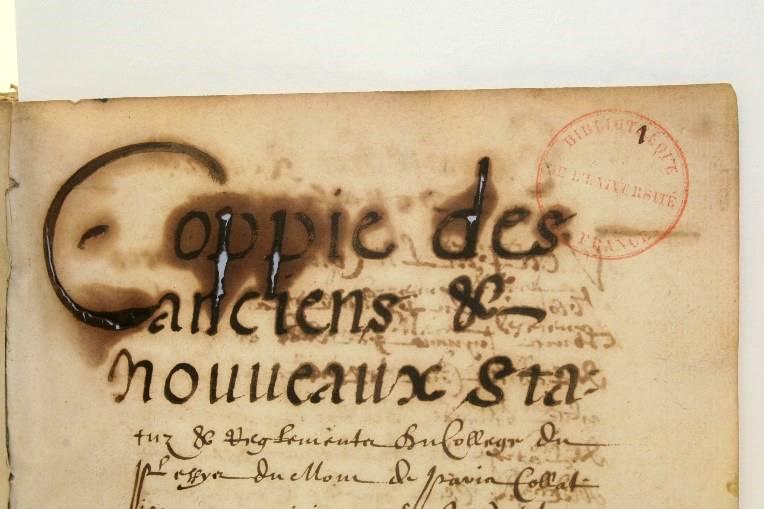 1
BIBLIOTHÈQUE
DE L'UNIVERSITÉ
FRANCE
Coppie des
anciens &
nouveaux Sta-
tuz & Reglements du College du
du Mont de Paris